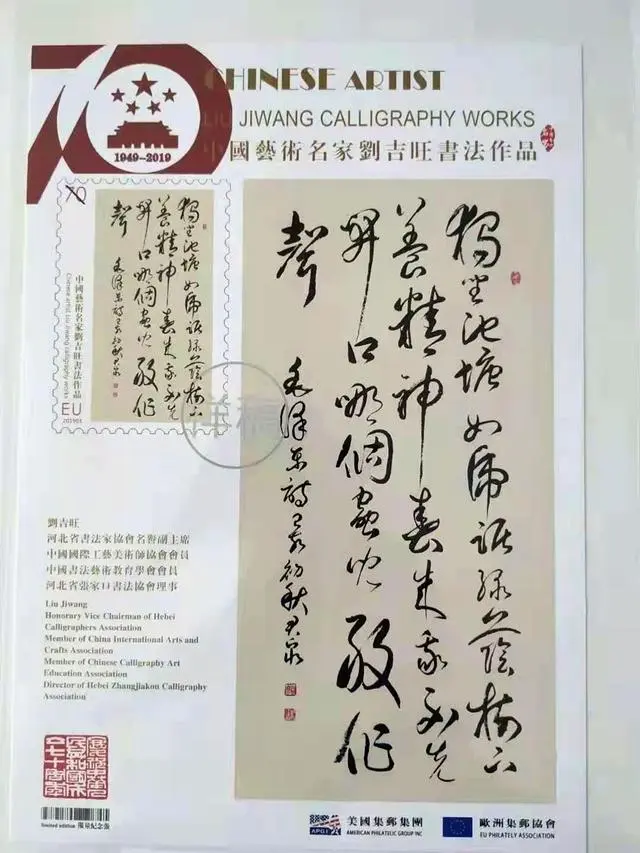 70
1949-2019
CHINESE ARTIST
LIU JIWANG CALLIGRAPHY WORKS
中國藝術名家劉吉旺書法作品
70
獨坐池塘如虎踞綠蔭樹下
養精神春來我不先
開口哪個蟲兒敢作
聲
毛澤東詩
中國藝術名家劉吉旺書法作品
Chinese artist Liu Jiwang calligraphy works
EU
獨坐池塘如虎踞綠蔭樹下
養精神春來我不先
開口哪個蟲兒敢作
聲
毛澤東詩
洋稿
劉吉旺
河北省書法家協會名譽副主席
中國國際工藝美術師協會會員
中國書法藝術教育學會會員
河北省張家口書法協會理事
Liu Jiwang
Honorary Vice Chairman of Hebei
Calligraphers Association
Member of China International Arts and
Crafts Association
Member of Chinese Calligraphy Art
Education Association
Director of Hebei Zhangjiakou Calligraphy
Association
limited edition 限量紀念張
APGI
美國集郵集團
AMERICAN PHILATELIC GROUP INC
歐洲集郵協會
EU PHILATELY ASSOCIATION